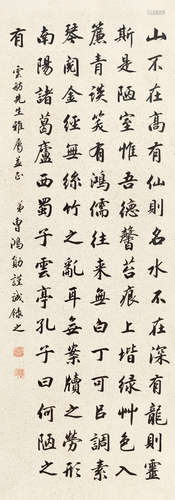 山不在高有仙則名水不在深有龍則靈
斯是陋室惟吾德馨苔痕上堦綠艸色入
簾青談笑有鴻儒往來無白丁可㠯調素
琴閱金經無絲竹之亂耳無案牘之勞形
南陽諸葛廬西蜀子雲亭孔子曰何陋之
有
雲舫先生雅屬並正
弟曹鴻勛謹誠錄之